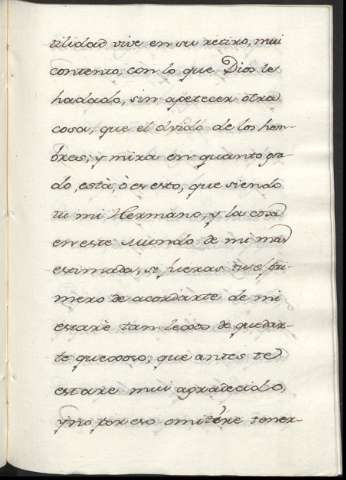 tilidad vive en su retiro, mui
contento, con lo que Dios le
hadado, sin apetecer otra
cosa, que el olvido de los hom-
bres; y mira en quanto gra-
do, està, ò es esto, que siendo
tu mi Hermano, y la cosa
en este Mundo de mi mas
estimada, si fueras tu el pri-
mero de acordarte de mi
estarè tan lexos de quedar-
te quexoso, que antes te
estarè mui agradecido,
y no por eso omitirè tener-